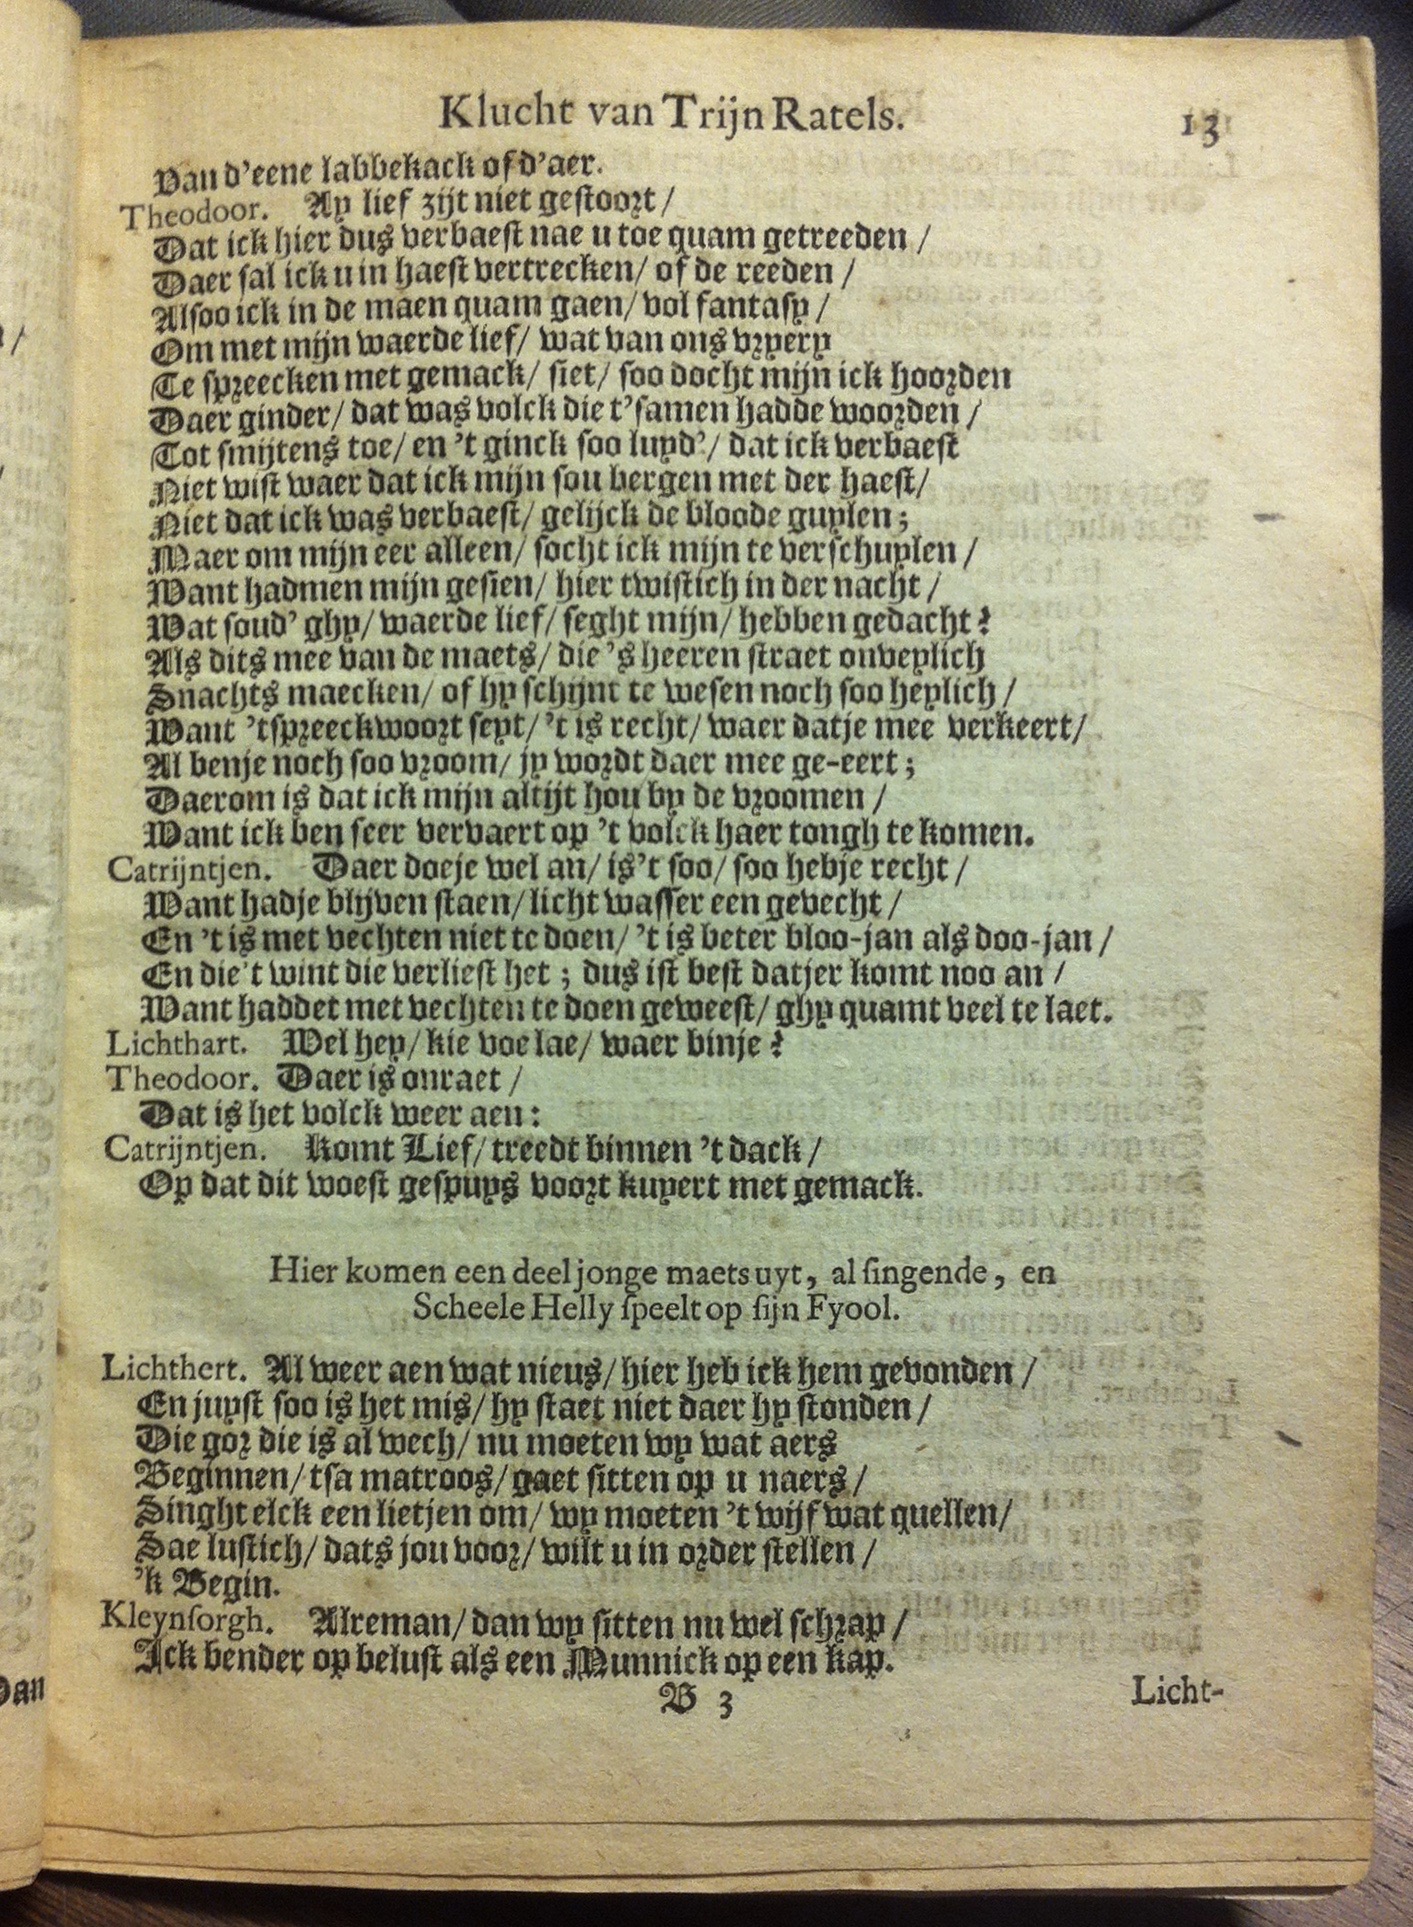 Klucht van Trijn Ratels. 13
Van d'eene labbekack of d'aer.
Theodoor. Ay lief zijt niet gestoort /
Dat ick hier dus verbaest nae u toe quam getreeden /
Daer sal ick u in haest vertrecken / of de reeden /
Alsoo ick in de maen quam gaen / vol fantasy /
Om met mijn waerde lief / wat van ons vryery
Te spreecken met gemack / siet / soo docht mijn ick hoorden
Daer ginder / dat was volck die t'samen hadde woorden /
Tot smijtens toe / en 't ginck soo luyd' / dat ick verbaest
Niet wist waer dat ick mijn sou bergen met der haest /
Niet dat ick was verbaest / gelijck de bloode guylen ;
Maer om mijn eer alleen / socht ick mijn te verschuylen /
Want hadmen mijn gesien / hier twistich in der nacht /
Wat soud' ghy / waerde lief / seght mijn / hebben gedacht ?
Als dits mee van de maets / die 's heeren straet onveylich
Snachts maecken / of hy schijnt te wesen noch soo heylich /
Want 'tspreeckwoort seyt / 't is recht / waer datje mee verkeert /
Al benje noch soo vroom / jy wordt daer mee ge-eert ;
Daerom is dat ick mijn altijt hou by de vroomen /
Want ick ben seer vervaert op 't volck haer tongh te komen.
Catrijntjen. Daer doeje wel an / is 't soo / soo hebje recht /
Want hadje blijven staen / licht wasser een gevecht /
En 't is met vechten niet te doen / 't is beter bloo-jan als doo-jan /
En die 't wint die verliest het ; dus ist best datjer komt noo an /
Want haddet met vechten te doen geweest / ghy quamt veel te laet.
Lichthart. Wel hey / kie voe lae / waer binje ?
Theodoor. Daer is onraet /
Dat is het volck weer aen :
Catrijntjen. Komt Lief / treedt binnen 't dack /
Op dat dit woest gespuys voort kuyert met gemack.
Hier komen een deel jonge maets uyt, al singende, en
Scheele Helly speelt op sijn Fyool.
Lichthert. Al weer aen wat nieus / hier heb ick hem gevonden /
En juyst soo is het mis / hy staet niet daer hy stonden /
Die gor die is al wech / nu moeten wy wat aers
Beginnen / tsa matroos / gaet sitten op u naers /
Singht elck een lietjen om / wy moeten 't wijf wat quellen /
Sae lustich / dats jou voor / wilt u in order stellen /
'k Begin.
Kleynsorgh. Alreman / dan wy sitten nu wel schrap /
Ick bender op belust als een Munnick op een kap.
B 3 Licht-